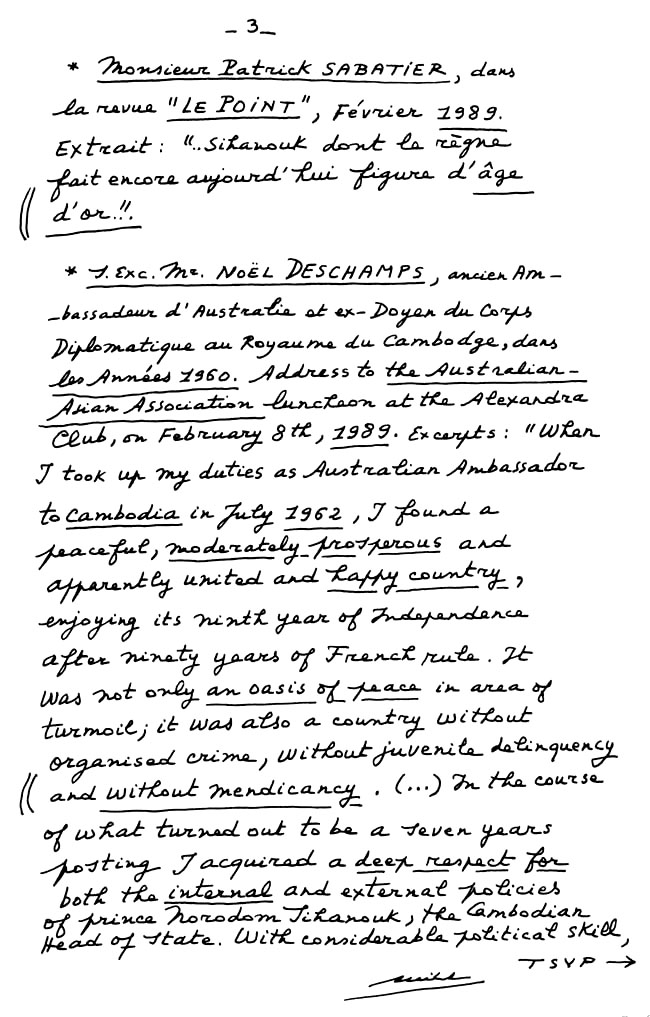 _ 3 _
* Monsieur Patrick SABATIER, dans
la revue "LE POINT", Février 1989.
Extrait : "..Sihanouk dont le règne
fait encore aujourd'hui figure d'âge
d'or.!!.
* S. Exc. Mr. NOËL DESCHAMPS, ancien Am-
-bassadeur d'Australie et ex-Doyen du Corps
Diplomatique au Royaume du Cambodge, dans
les Années 1960. Address to the Australian-
Asian Association luncheon at the Alexandra
Club, on February 8th, 1989. Excerpts : "When
I took up my duties as Australian Ambassador
to Cambodia in July 1962, I found a
peaceful, moderately prosperous and
apparently united and happy country,
enjoying its ninth year of Independence
after ninety years of French rule. It
was not only an oasis of peace in area of
turmoil; it was also a country without
organised crime, without juvenile delinquency
and without mendicancy. (...) In the course
of what turned out to be a seven years
posting I acquired a deep respect for
both the internal and external policies
of prince Norodom Sihanouk, the Cambodian
Head of State. With considerable political skill,
TSVP →